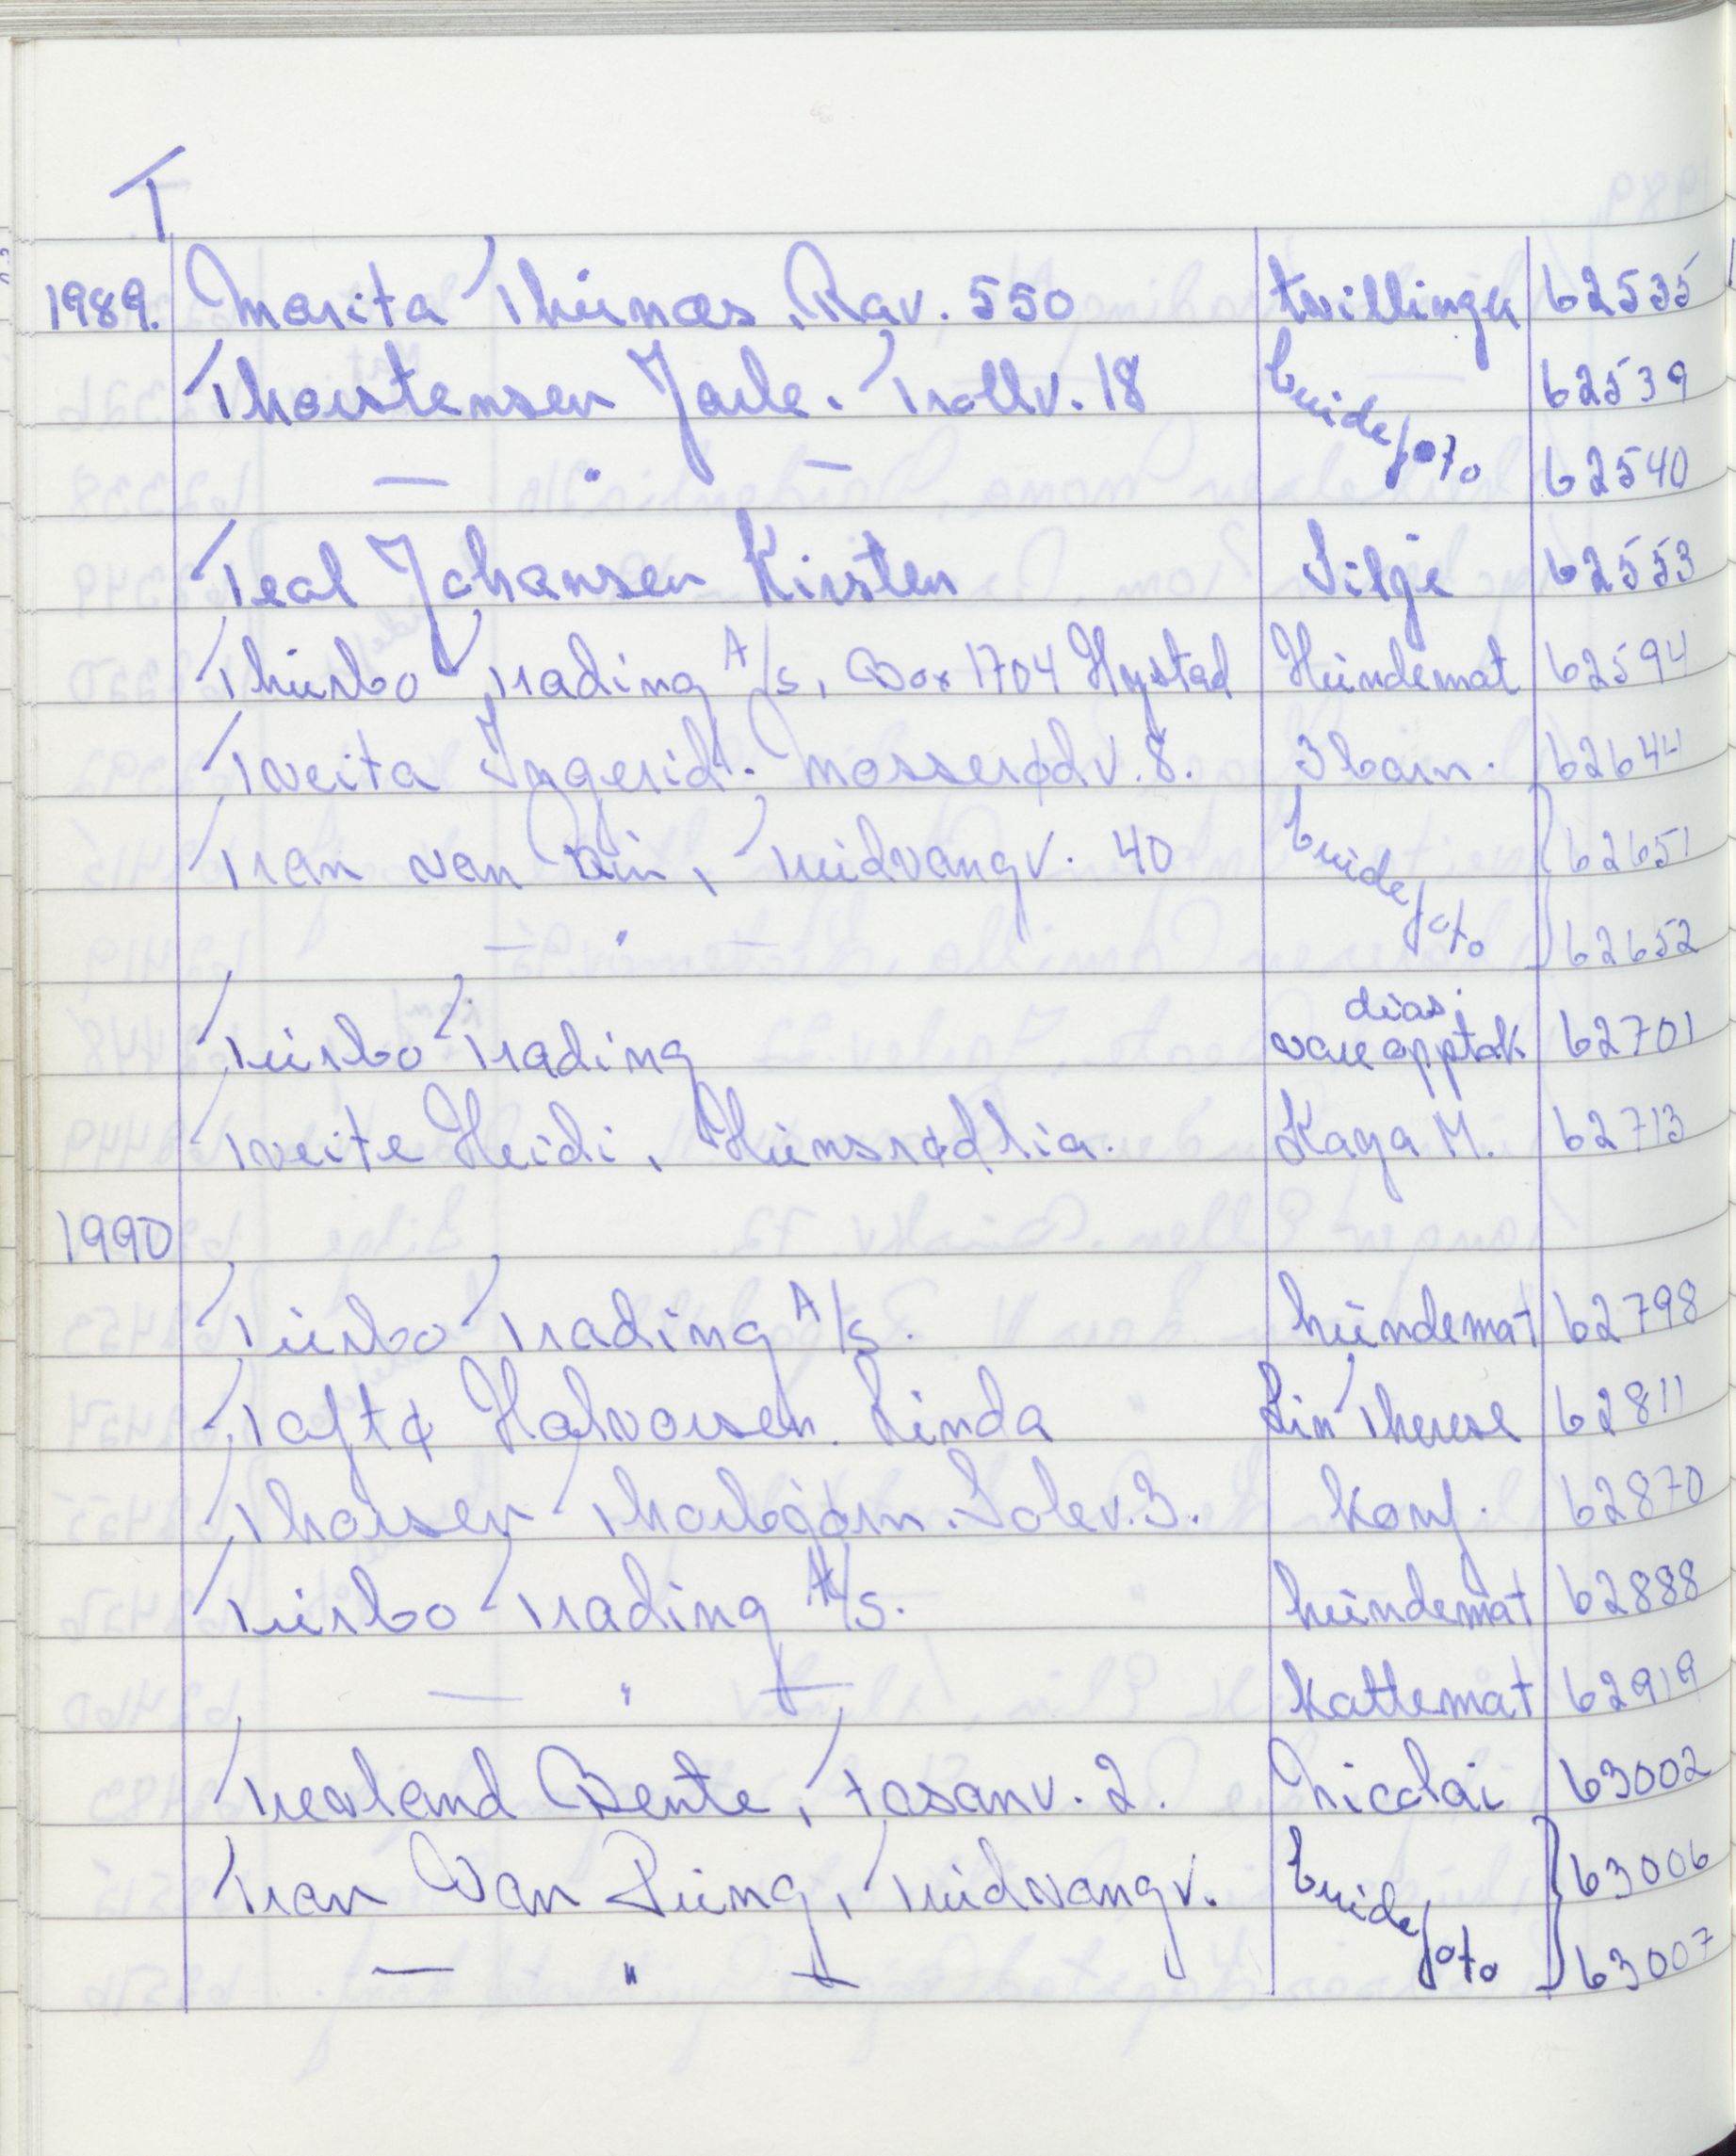 T
1989. Marita Thunæs, Rav. 550 tvillinger 62535
Thorstensen Jarle. Trollv. 18 brudefoto 62539
— " — 62540
Teal Johansen Kirsten Silje 62553
Thurbo Trading A/s, Box 1704 Hystad Hundemat 62594
Tveita Ingerid. Mosserødv. 8. 3 barn. 62644
Tran van, Truidvangv. 40 brudefoto 62651
— " — 62652
Turbo Trading dias. vareopptak 62701
Tveite Heidi, Hunsrødlia. Kaya M. 62713
1990
Turbo Trading A/s. hundemat 62798
Taftø Halvorsen. Linda Lin Therese 62811
Thorsen Thorbjørn. Solev. 3. konf. 62870
Turbo Trading A/s. hundemat 62888
— " — kattemat 62919
Trevland Bente, Tosanv. 2. Nicolai 63002
Tran Van Dung, Truidvangv. brudefoto 63006
— " — 63007